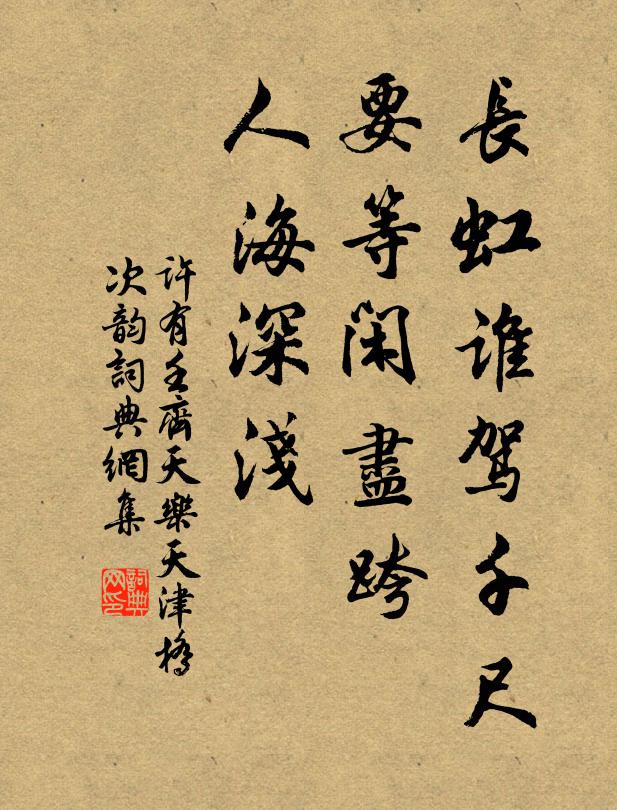 長虹谁駕千尺
要等閑盡跨
人海深淺
许有壬齊天樂天津橋
次韵詞典網集
詞典网印